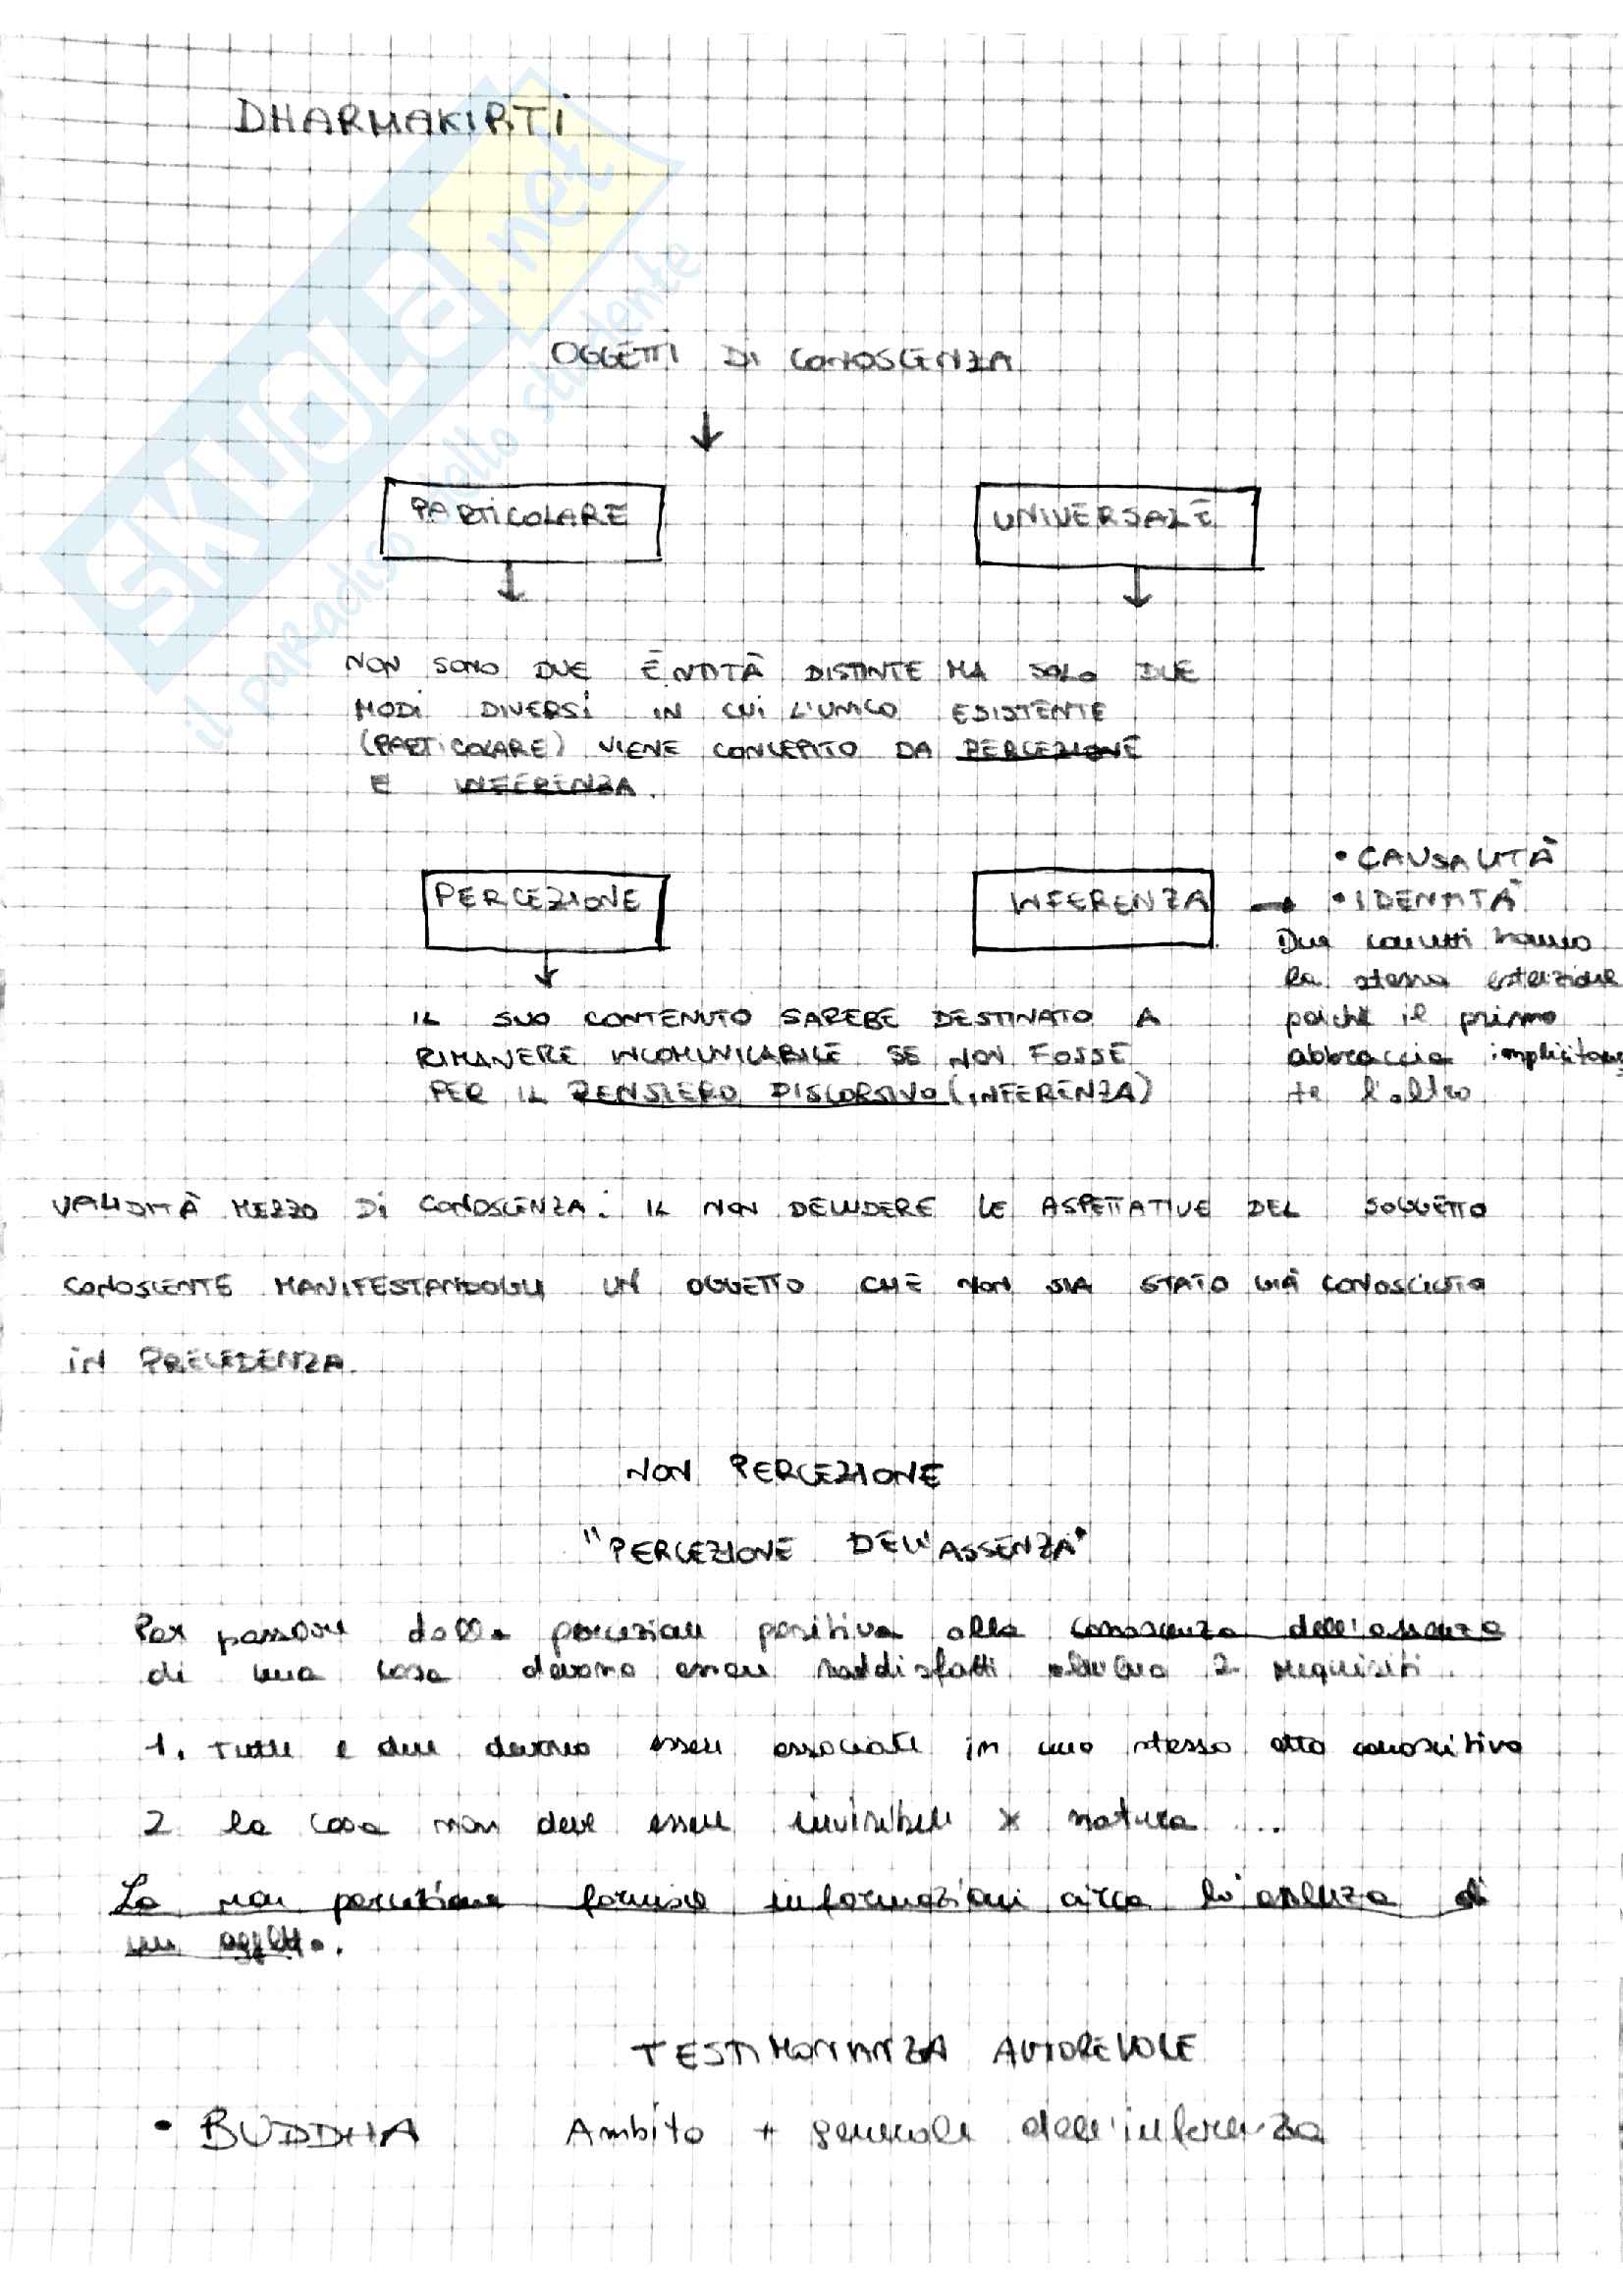 DHARMAKIRTI
SKUOLA.net
il paradiso dello studente
OGGETTI DI CONOSCENZA
↓
PARTICOLARE UNIVERSALE
↓ ↓
NON SONO DUE ENTITÀ DISTINTE MA SOLO DUE
MODI DIVERSI IN CUI L'UNICO ESISTENTE
(PARTICOLARE) VIENE CONCEPITO DA PERCEZIONE
E INFERENZA.
PERCEZIONE INFERENZA →
• CAUSALITÀ
• IDENTITÀ
Due concetti hanno
la stessa estenzione
poiché il primo
abbraccia implicitamen
te l'altro
↓
IL SUO CONTENUTO SAREBE DESTINATO A
RIMANERE INCOMUNICABILE SE NON FOSSE
PER IL PENSIERO DISCORSIVO (INFERENZA)
VALIDITÀ MEZZO DI CONOSCENZA: IL NON DELUDERE LE ASPETTATIVE DEL SOGGETTO
CONOSCENTE MANIFESTANDOGLI UN OGGETTO CHE NON SIA STATO GIÀ CONOSCIUTO
IN PRECEDENZA.
NON PERCEZIONE
"PERCEZIONE DELL'ASSENZA"
Per passare dalla percezione positiva alla conoscenza dell'assenza
di una cosa devono essere soddisfatti 2 requisiti.
1. Tutte e due devono essere associate in uno stesso atto conoscitivo
2. la cosa non deve essere invisibile x natura ...
La non percezione fornisce informazioni circa l'assenza di
un oggetto.
TESTIMONIANZA AUTOREVOLE
• BUDDHA Ambito + generale dell'inferenza